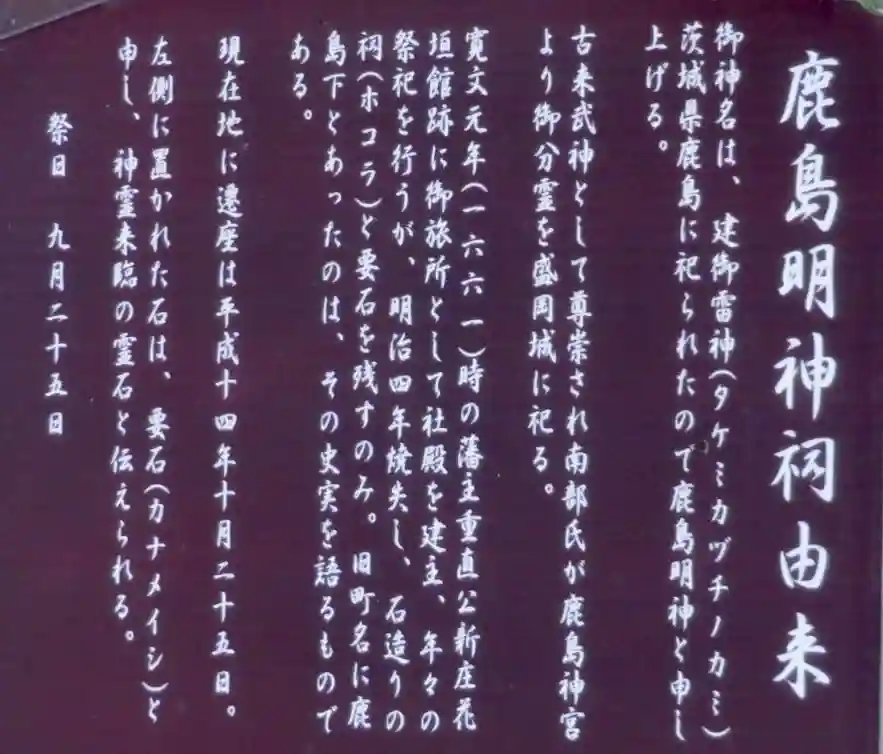 鹿島明神祠由来
御神名は、建御雷神(タケミカヅチノカミ)
茨城県鹿島に祀られたので鹿島明神と申し
上げる。
古来武神として尊崇され南部氏が鹿島神宮
より御分霊を盛岡城に祀る。
寛文元年(一六六一)時の藩主重直公新庄花
垣館跡に御旅所として社殿を建主、年々の
祭祀を行うが、明治四年焼失し、石造りの
祠(ホコラ)と要石を残すのみ。旧町名に鹿
島下とあったのは、その史実を語るもので
ある。
現在地に遷座は平成十四年十月二十五日。
左側に置かれた石は、要石(カナメイシ)と
申し、神霊来臨の霊石と伝えられる。
祭日 九月二十五日